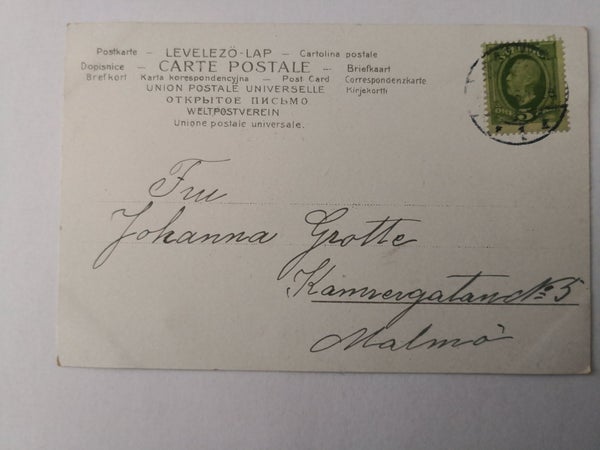 Postkarte – LEVELEZÖ-LAP – Cartolina postale
Dopisnice – CARTE POSTALE – Briefkaart
Brefkort Karta korespondencyjna – Post Card Correspondenzkarte
UNION POSTALE UNIVERSELLE Kirjekortti
ОТКРЫТОЕ ПИСЬМО
WELTPOSTVEREIN
Unione postale universale.
5
Fru
Johanna Grotte
No 5
Malmö